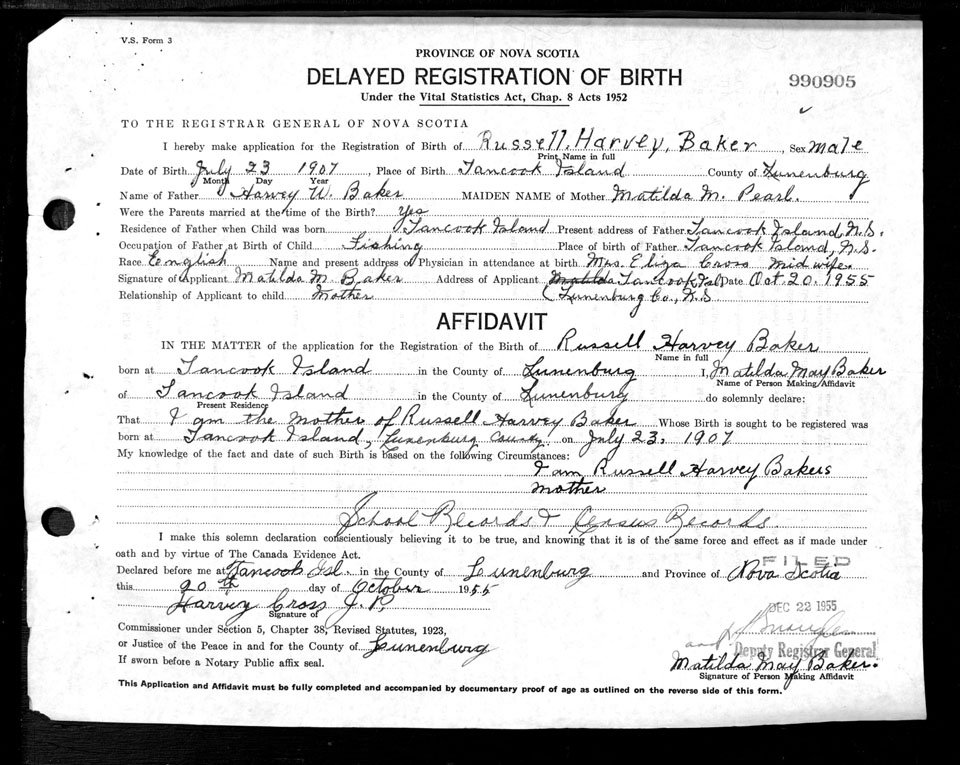 V.S. Form 3
PROVINCE OF NOVA SCOTIA
DELAYED REGISTRATION OF BIRTH
990905
Under the Vital Statistics Act, Chap. 8 Acts 1952
TO THE REGISTRAR GENERAL OF NOVA SCOTIA
I hereby make application for the Registration of Birth of Russell. Harvey, Baker, Sex male
Print Name in full
Date of Birth July 23 1907, Place of Birth Tancook Island County of Lunenburg
Month Day Year
Name of Father Harvey W. Baker MAIDEN NAME of Mother Matilda M. Pearl.
Were the Parents married at the time of the Birth? Yes
Residence of Father when Child was born Tancook Island Present address of Father Tancook Island, N.S.
Occupation of Father at Birth of Child Fishing Place of birth of Father Tancook Island, N.S.
Race English Name and present address of Physician in attendance at birth Mrs. Eliza Cross Mid wife
Signature of Applicant Matilda M. Baker Address of Applicant Matilda Tancook Isl Date Oct 20. 1955
Relationship of Applicant to child Mother (Lunenburg Co., N.S
AFFIDAVIT
IN THE MATTER of the application for the Registration of the Birth of Russell Harvey Baker
Name in full
born at Tancook Island in the County of Lunenburg I, Matilda May Baker
Name of Person Making Affidavit
of Tancook Island in the County of Lunenburg do solemnly declare:
Present Residence
That I am the Mother of Russell Harvey Baker Whose Birth is sought to be registered was
born at Tancook Island, Lunenburg County on July 23, 1907
My knowledge of the fact and date of such Birth is based on the following Circumstances:
I am Russell Harvey Bakers
Mother
School Records & Census Records.
I make this solemn declaration conscientiously believing it to be true, and knowing that it is of the same force and effect as if made under
oath and by virtue of The Canada Evidence Act.
FILED
Declared before me at Tancook Isl. in the County of Lunenburg and Province of Nova Scotia
this 20th day of October 1955
DEC 22 1955
Harvey Cross J.P.
Signature of
Commissioner under Section 5, Chapter 38, Revised Statutes, 1923,
or Justice of the Peace in and for the County of Lunenburg
Deputy Registrar General
If sworn before a Notary Public affix seal.
Matilda May Baker.
Signature of Person Making Affidavit
This Application and Affidavit must be fully completed and accompanied by documentary proof of age as outlined on the reverse side of this form.